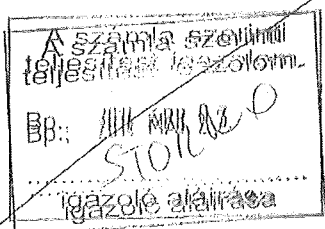 A számla szerinti
teljesítést igazolom.
Bp.:
STORNO
........................................
igazoló aláírása